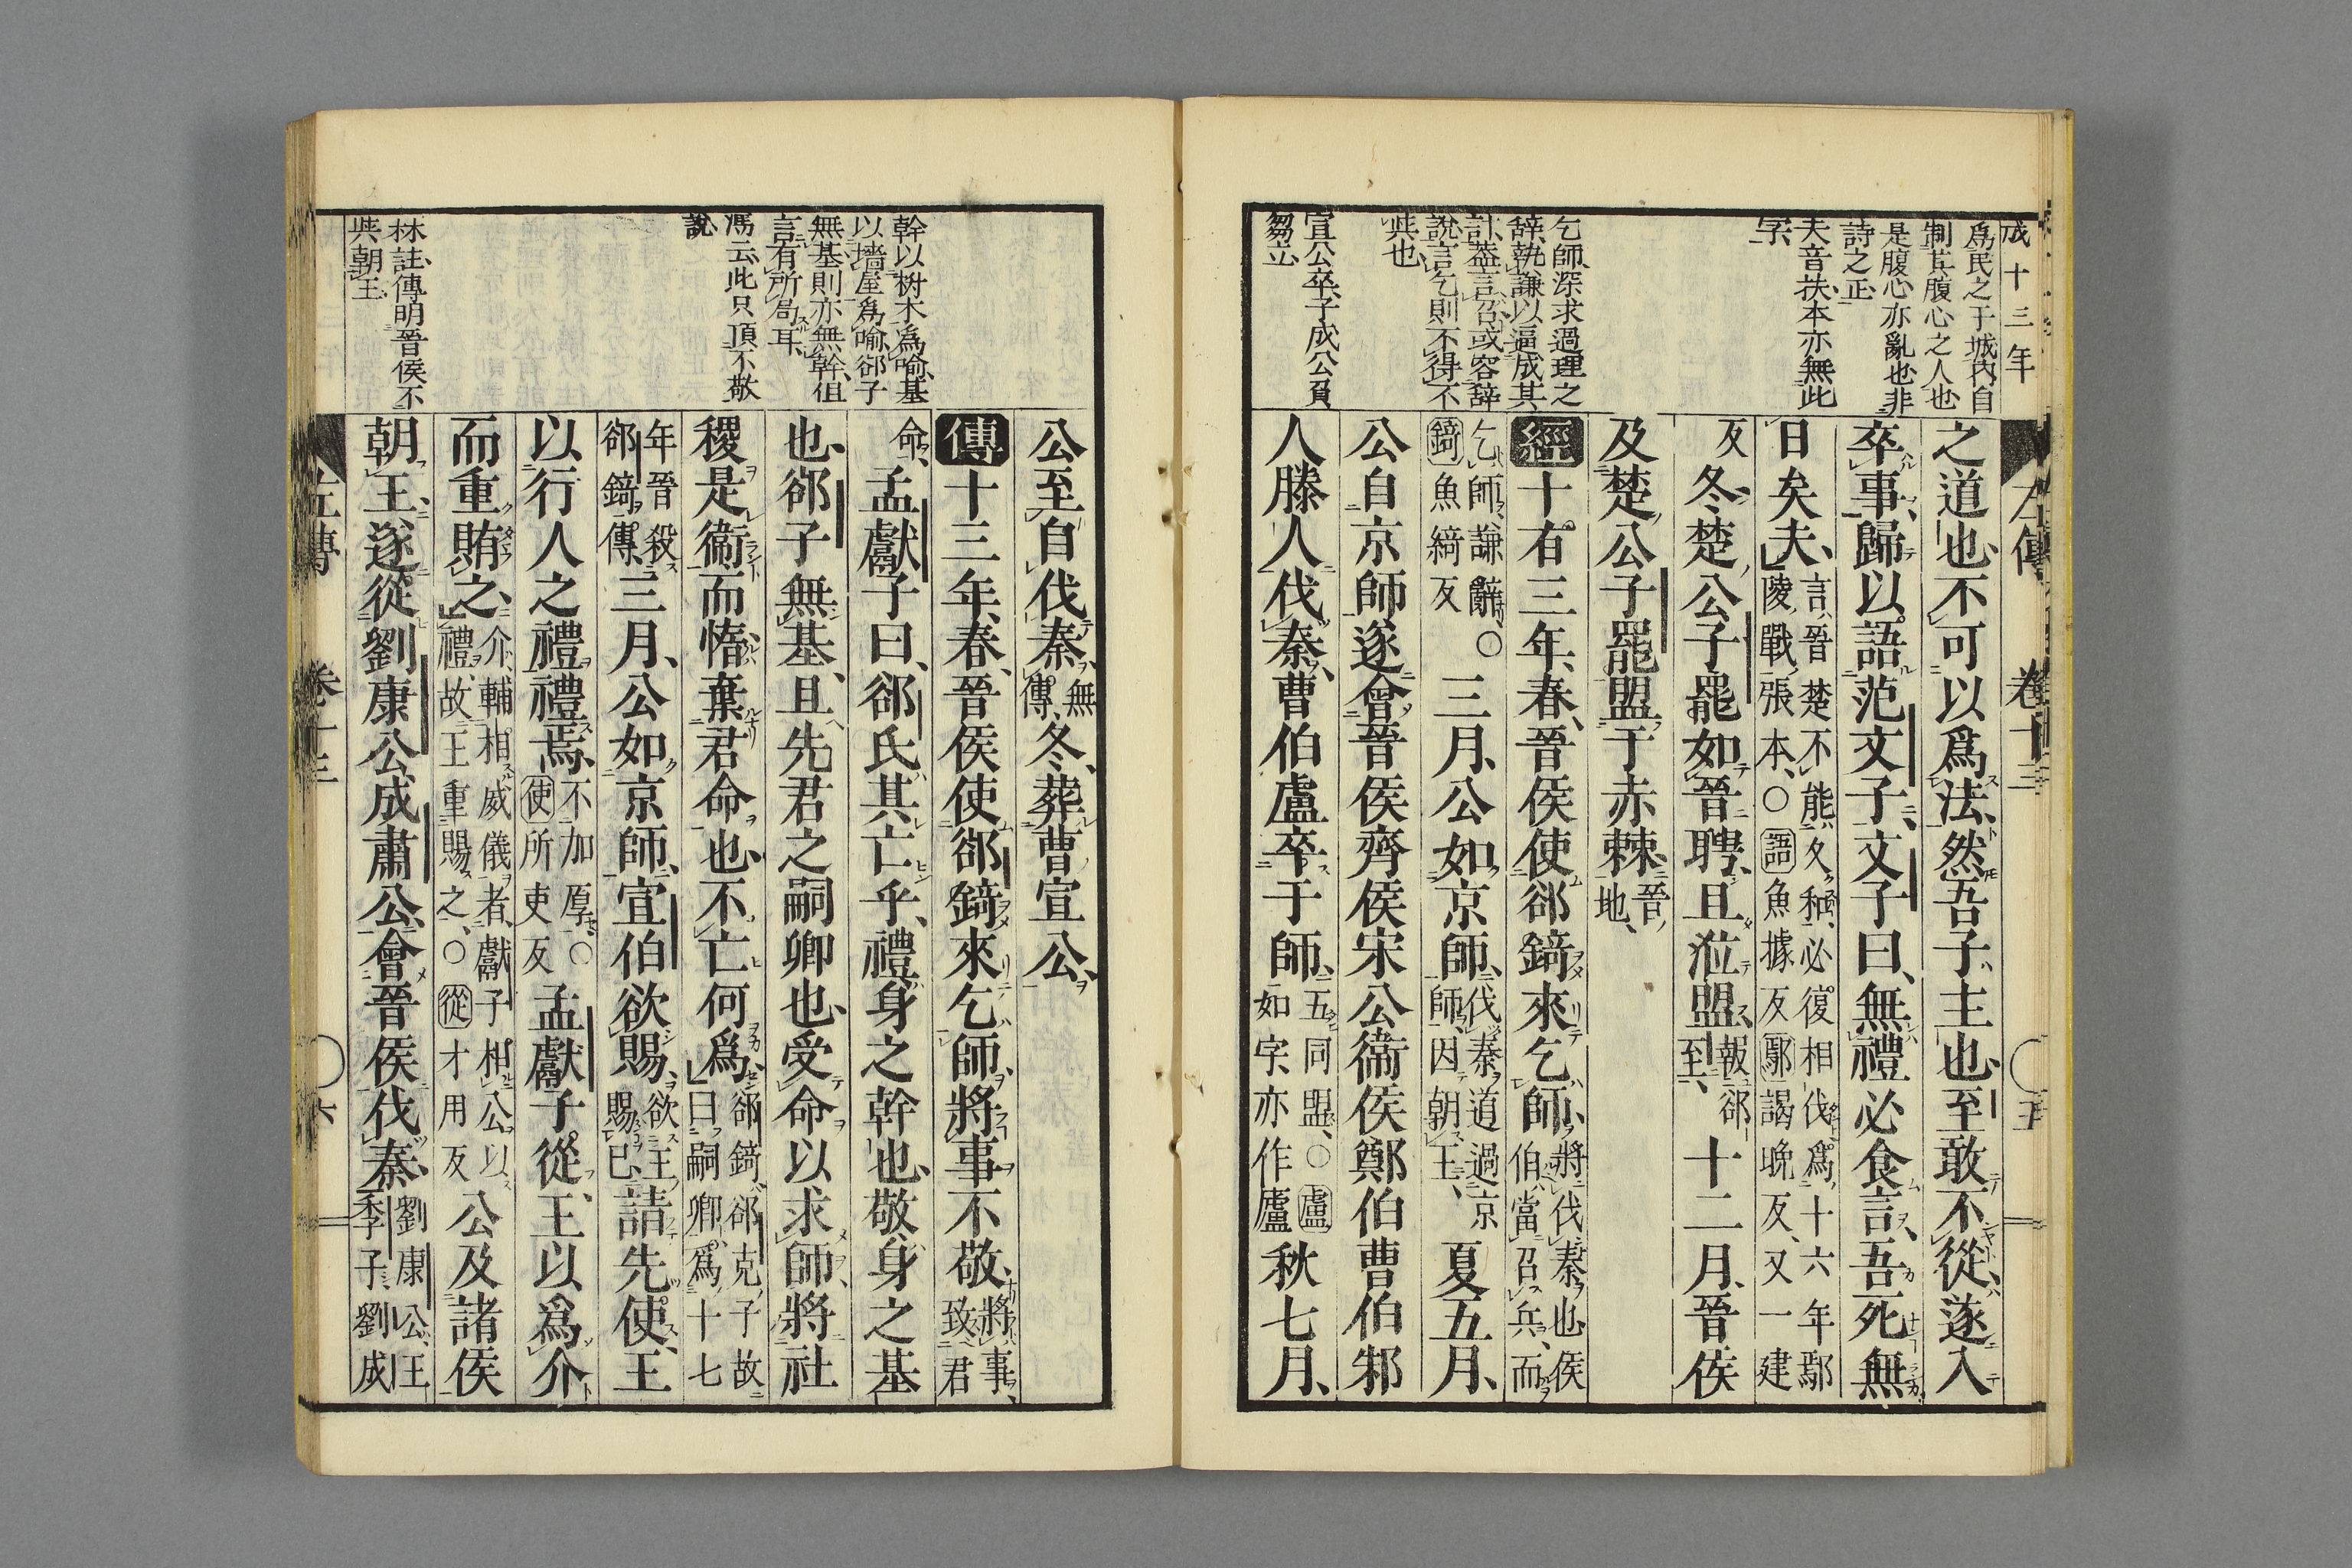 成十三年
爲民之于城内自
制其腹心之人也
是腹心亦亂也非
詩之正
夫音扶本亦無此
字
乞師深求過理之
辭執謙以逼成其
計蓋言召或容辭
說言乞則不得不
與也
宣公卒子成公負
芻立
左傳 卷十三 五
之道也、不可以爲法、然吾子主也、至敢不從、遂入
卒事、歸以語范文子、文子曰、無禮必食言、吾死無
日矣夫、言晉楚不能久和、必復相伐、爲十六年鄢
陵戰張本、○語魚據反鄢謁晩反、又一建
反冬、楚公子罷如晉聘、且涖盟、報郤
至、十二月、晉侯
及楚公子罷盟于赤棘、晉
地、
經十有三年、春、晉侯使郤錡來乞師、將伐秦也侯
伯當召兵、而
乞師、謙辭、○
錡魚綺反三月、公如京師、伐秦道過京
師、因朝王、夏五月、
公自京師遂會晉侯齊侯宋公衞侯鄭伯曹伯邾
人滕人伐秦、曹伯盧卒于師、五同盟、○盧
如字亦作廬秋七月、
公至自伐秦、無
傳、冬、葬曹宣公、
傳十三年、春、晉侯使郤錡來乞師、將事不敬、將事、
致君
命、孟獻子曰、郤氏其亡乎、禮身之幹也、敬身之基
也、郤子無基、且先君之嗣卿也、受命以求師、將社
稷是衞而惰棄君命也、不亡何爲、郤錡郤克子故
曰嗣卿、爲十七
年晉殺
郤錡傳、三月、公如京師、宣伯欲賜、欲王
賜己、請先使、王
以行人之禮禮焉、不加厚、○
使所吏反孟獻子從、王以爲介
而重賄之、介、輔相威儀者、獻子相公以
禮、故王重賜之、○從才用反公及諸侯
朝王、遂從劉康公成肅公會晉侯伐秦、劉康公、王
季子、劉成
幹以樹木爲喩基
以墻屋爲喩郤子
無基則亦無幹但
言有所局耳
馮云此只頂不敬
說
林註傳明晉侯不
與朝王
左傳 卷十三 六